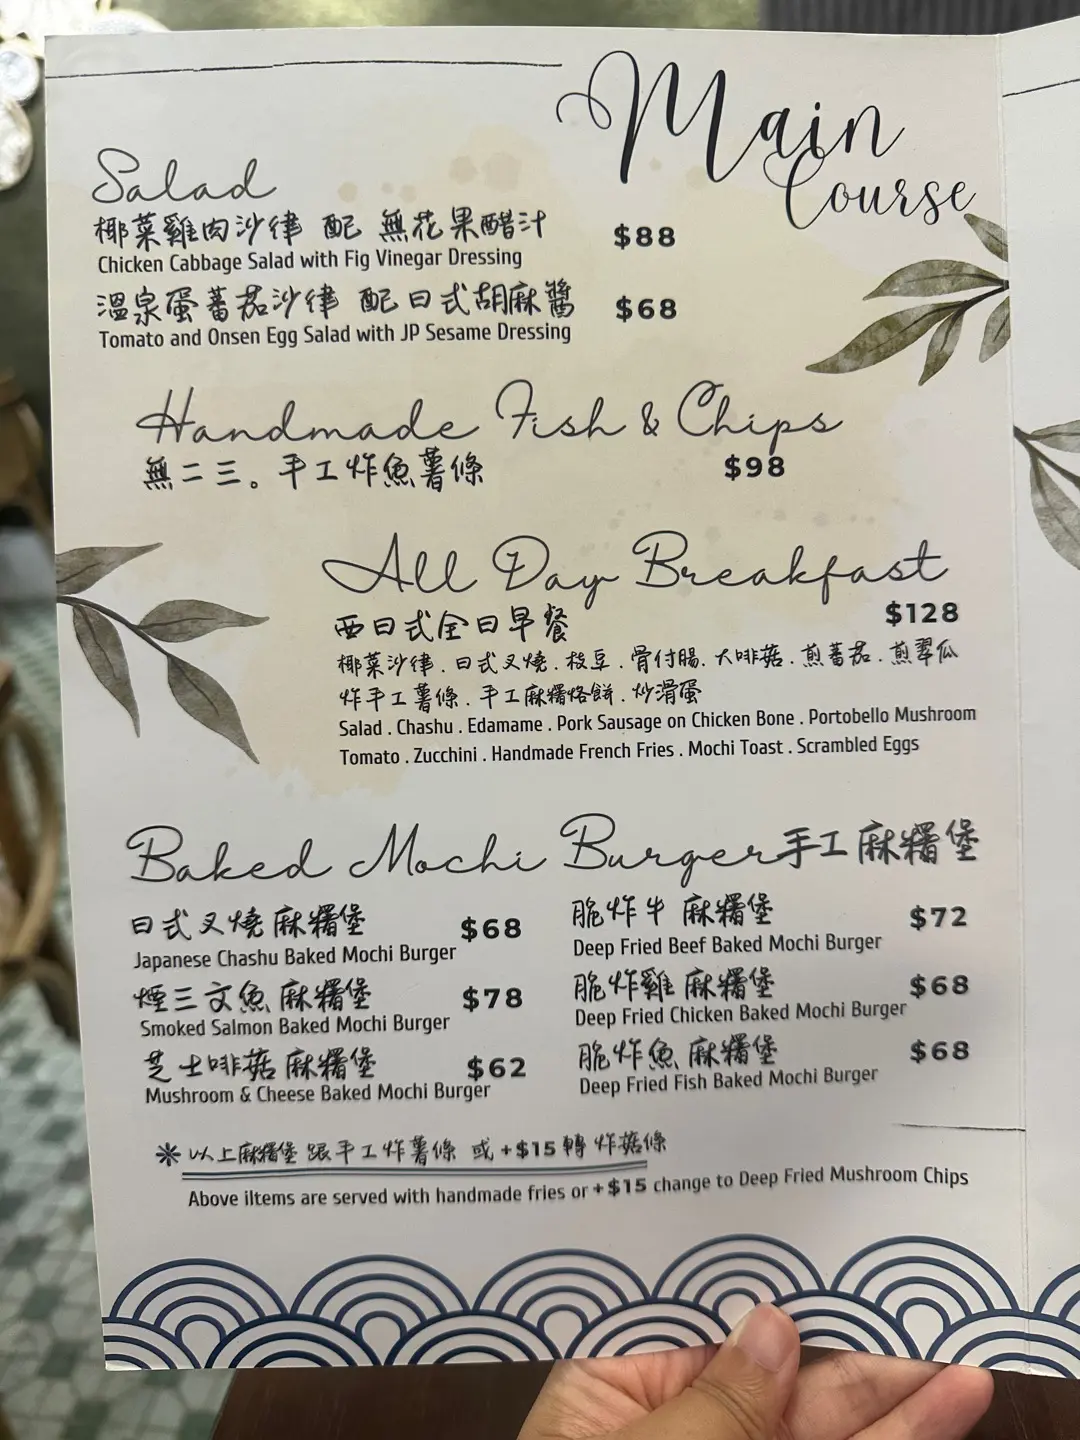 Main
Course
Salad
椰菜雞肉沙律 配 無花果醋汁 $88
Chicken Cabbage Salad with Fig Vinegar Dressing
溫泉蛋蕃茄沙律 配日式胡麻醬 $68
Tomato and Onsen Egg Salad with JP Sesame Dressing
Handmade Fish & Chips
無二三。手工炸魚薯條 $98
All Day Breakfast
西日式全日早餐 $128
椰菜沙律．日式叉燒．枝豆．骨付腸．大啡菇．煎蕃茄．煎翠瓜
炸手工薯條．手工麻糬烙餅．炒滑蛋
Salad . Chashu . Edamame . Pork Sausage on Chicken Bone . Portobello Mushroom
Tomato . Zucchini . Handmade French Fries . Mochi Toast . Scrambled Eggs
Baked Mochi Burger手工麻糬堡
日式叉燒麻糬堡 $68
Japanese Chashu Baked Mochi Burger
煙三文魚麻糬堡 $78
Smoked Salmon Baked Mochi Burger
芝士啡菇麻糬堡 $62
Mushroom & Cheese Baked Mochi Burger
脆炸牛麻糬堡 $72
Deep Fried Beef Baked Mochi Burger
脆炸雞麻糬堡 $68
Deep Fried Chicken Baked Mochi Burger
脆炸魚麻糬堡 $68
Deep Fried Fish Baked Mochi Burger
※以上麻糬堡 跟手工炸薯條 或 +$15轉 炸菇條
Above iItems are served with handmade fries or +$15 change to Deep Fried Mushroom Chips